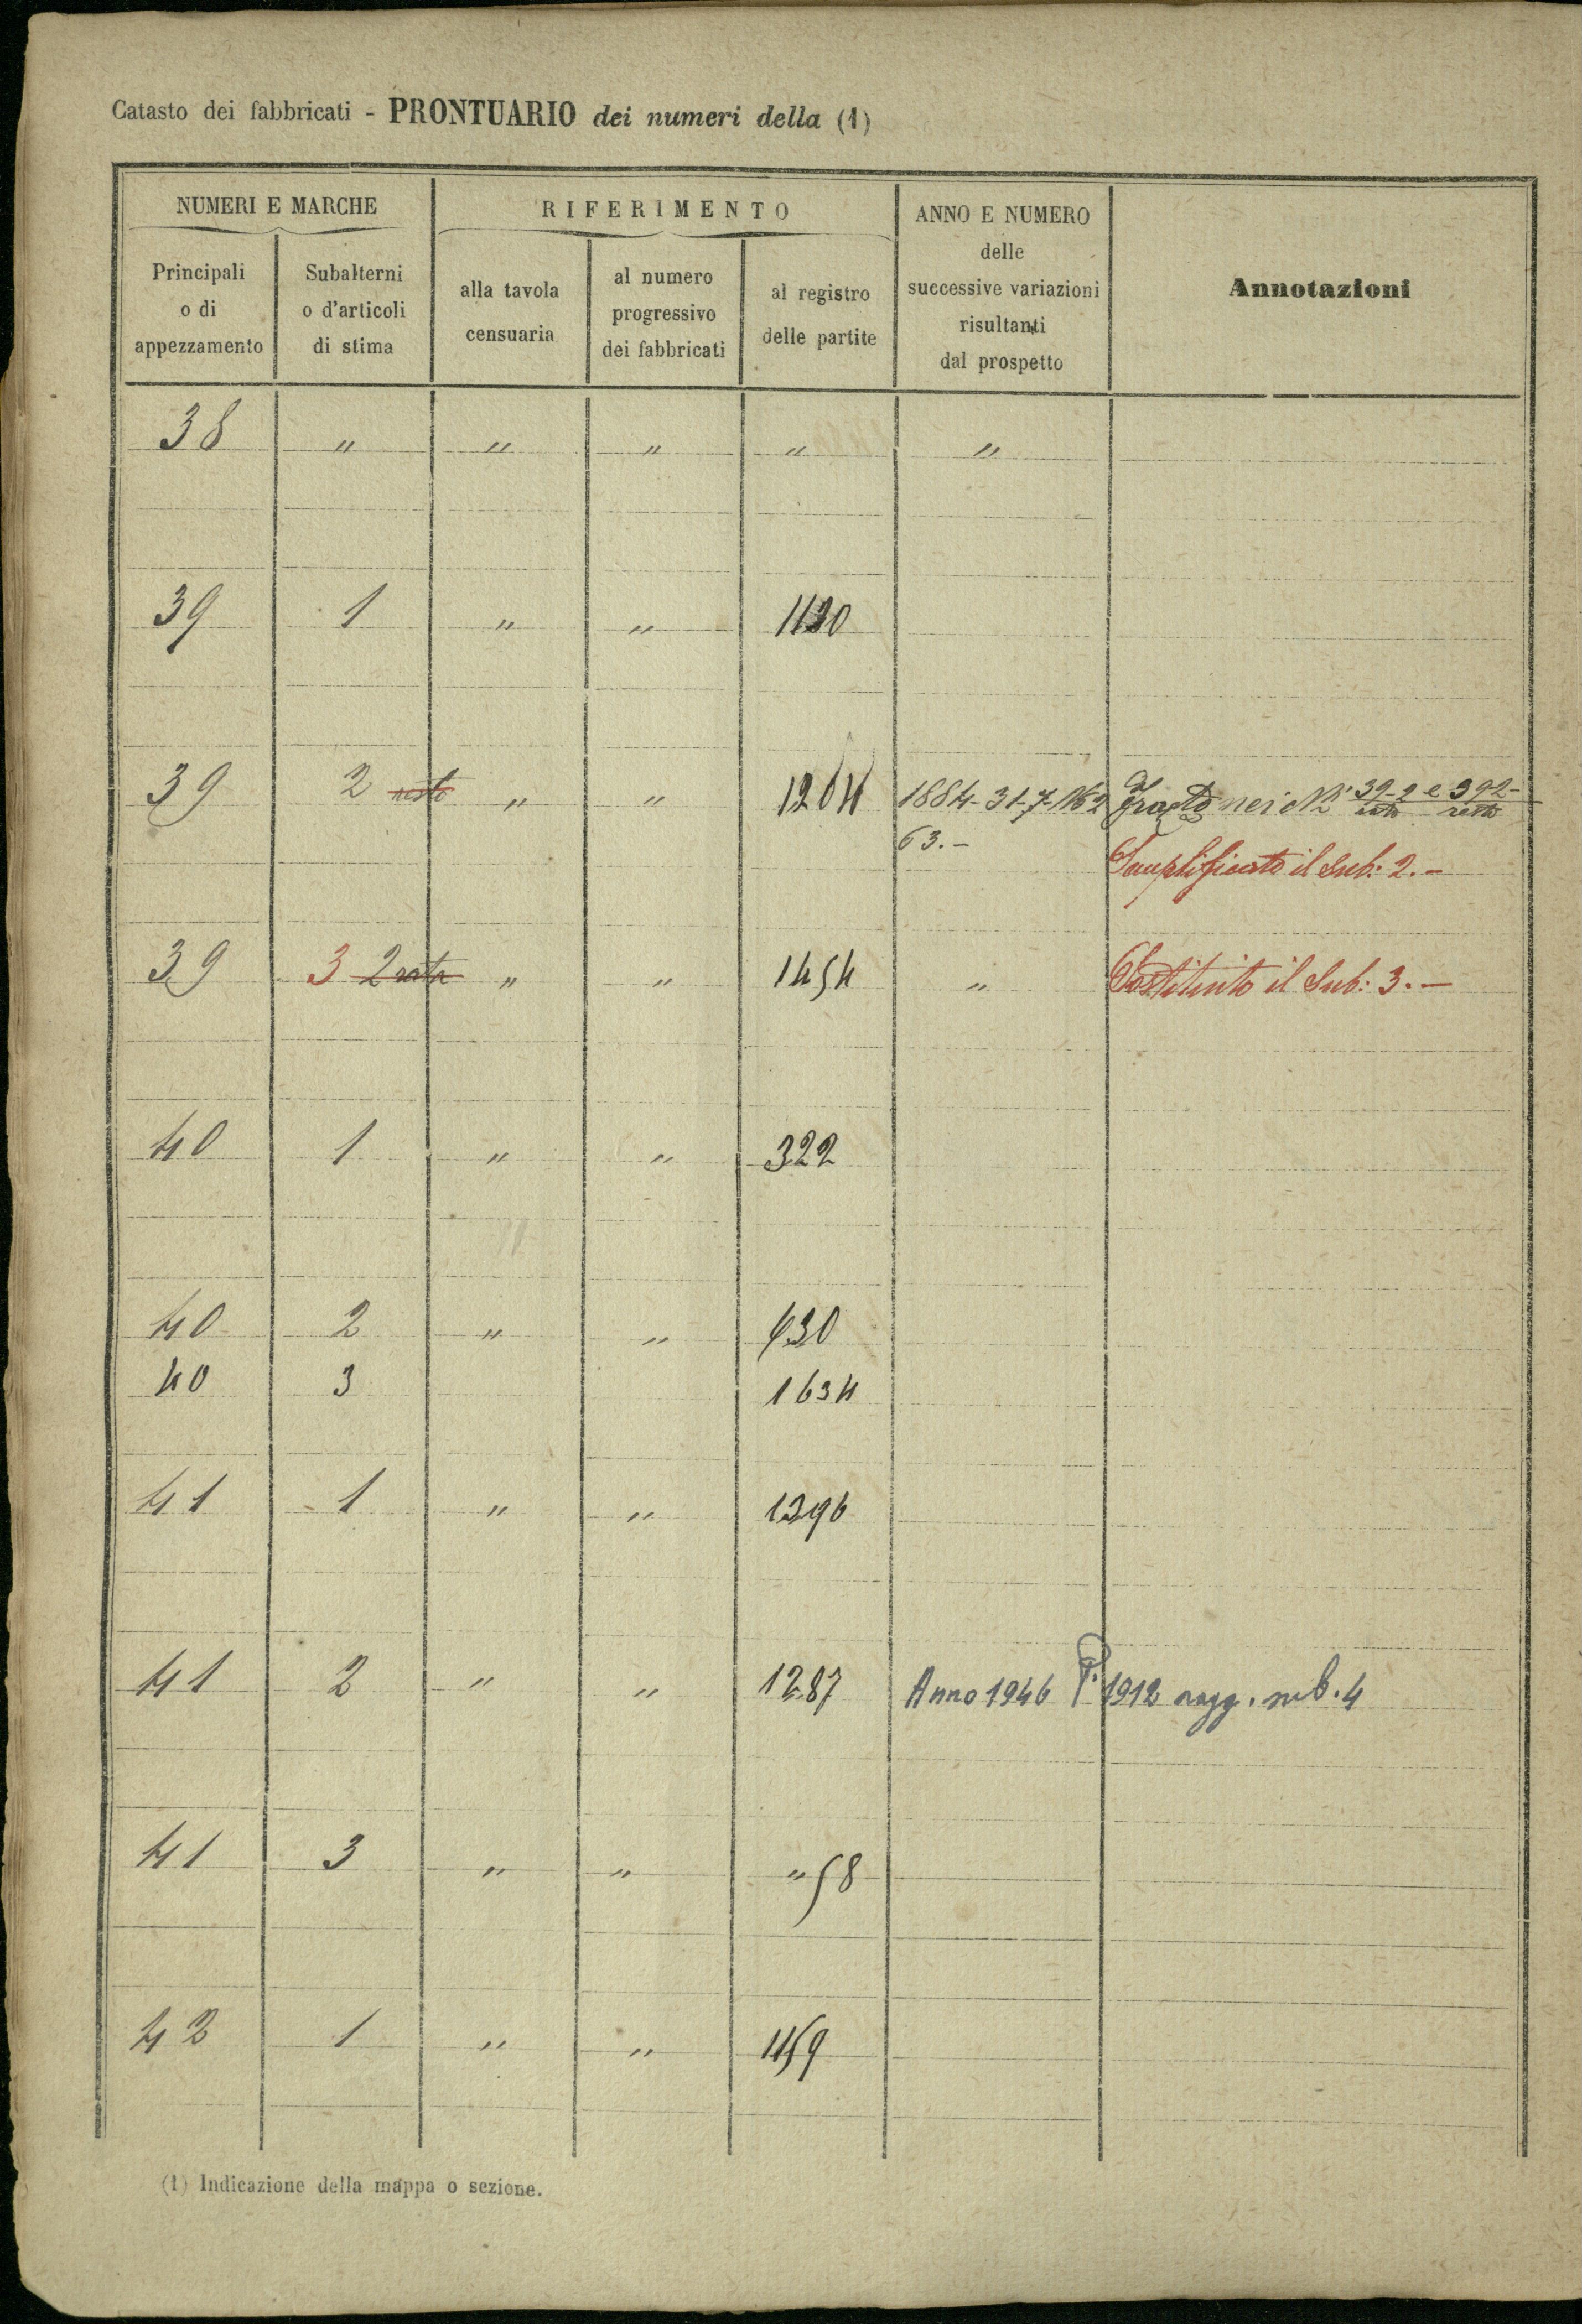 Catasto dei fabbricati - PRONTUARIO dei numeri della (1)
NUMERI E MARCHE
RIFERIMENTO
ANNO E NUMERO
delle
successive variazioni
risultanti
dal prospetto
Annotazioni
Principali
o di
appezzamento
Subalterni
o d'articoli
di stima
alla tavola
censuaria
al numero
progressivo
dei fabbricati
al registro
delle partite
38 " " " " "
39 1 " " 1130
39 2 resto " " 1264 1884-31-7-162 nei Ni 39-2 e 392-
63.- resto
Semplificato il Sub: 2.-
39 3 2 " " 1454 " Sostituito il Sub: 3.-
40 1 " " 322
40 2 " " 430
40 3 1634
41 1 " " 1396
41 2 " " 1287 Anno 1946 P. 1912 sub. 4
41 3 " " " 58
42 1 " " 1159
(1) Indicazione della mappa o sezione.